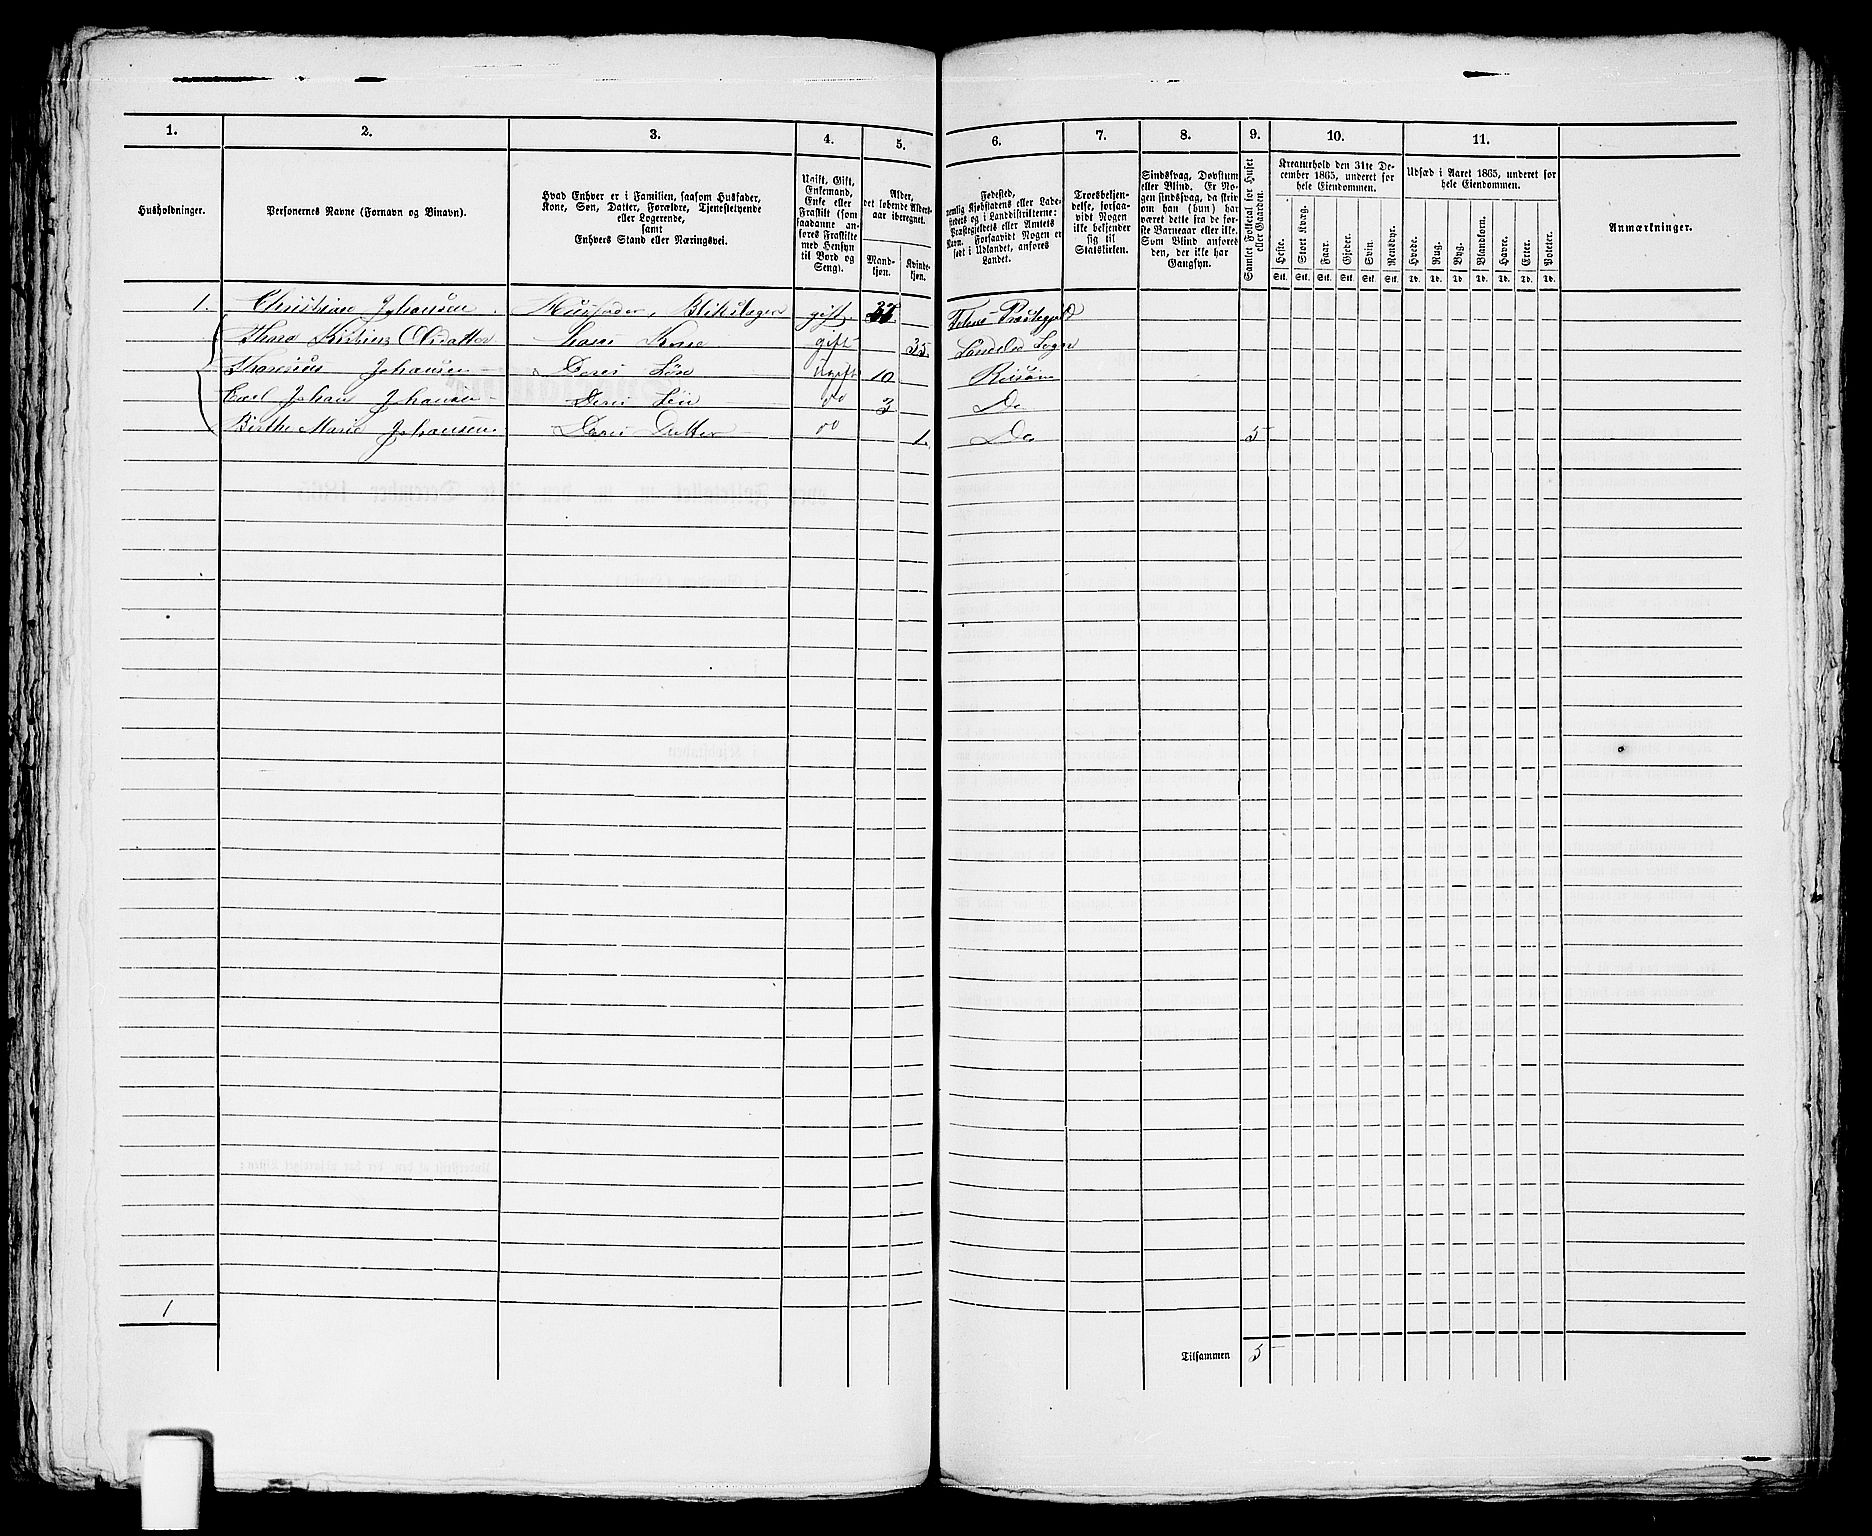 1.
2.
3.
4.
5.
6.
7.
8.
9.
10.
11.
Husholdninger.
Personernes Navne (Fornavn og Binavn).
Hvad Enhver er i Familien, saasom Husfader,
Kone, Søn, Datter, Forældre, Tjenestetyende
eller Logerende,
samt
Enhvers Stand eller Næringsvei.
Ugift, Gift,
Enkemand,
Enke eller
Fraskilt (som
saadanne an-
føres Fraskilte
med Hensyn
til Bord og
Seng).
Alder,
det løbende Alders-
aar iberegnet.
Mand-
kjøn.
Kvinde-
kjøn.
Fødested,
nemlig Kjøbstadens eller Lade-
stedets og i Landdistrikterne:
Præstegjeldets eller Amtets
Navn. Forsaavidt Nogen er
født i Udlandet, anføres
Landet.
Troesbekjen-
delse, forsaa-
vidt Nogen
ikke bekjender
sig til
Statskirken.
Sindssvag, Døvstum
eller Blind. Er No-
gen sindssvag, da skriv
om han (hun) har
været dette fra de før-
ste Barneaar eller ikke.
Som Blind anføres
den, der ikke har
Gangsyn.
Samlet Folketal for Huset
eller Gaarden.
Kreaturhold den 31te De-
cember 1865, underet for
hele Eiendommen.
Heste.
Stort Kvæg.
Faar.
Gjeder.
Svin.
Rensdyr.
Stk. Stk. Stk. Stk. Stk. Stk.
Udsæd i Aaret 1865, underet for
hele Eiendommen.
Hvede.
Rug.
Byg.
Blandkorn.
Havre.
Erter.
Poteter.
Td. Td. Td. Td. Td. Td. Td.
Anmærkninger.
1. Christian Johansen. Husfader, gift. Præstegjeld
Kirstine Olsdatter Hans Kone gift 35 Søndeled Sogn
Johansen Deres Søn Ugift 10 Risøer
Carl Johan Johansen Deres Søn do 3 Do
Birthe Marie Johansen Deres Datter do 1. Do 5
1
Tilsammen 5